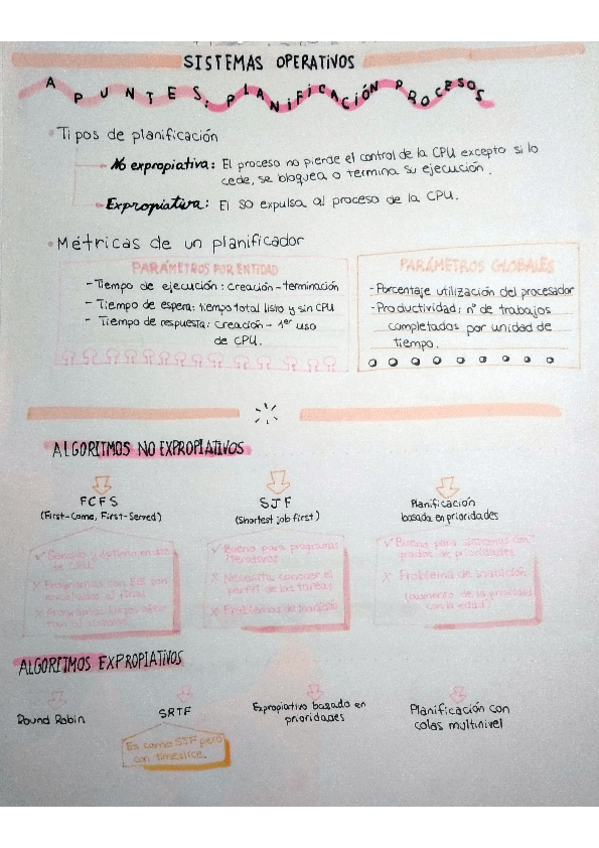 SISTEMAS OPERATIVOS
APUNTES: PLANIFICACIÓN PROCESOS
Tipos de planificación
No expropiativa: El proceso no pierde el control de la CPU excepto si lo
cede, se bloquea o termina su ejecución.
Expropiativa: El SO expulsa al proceso de la CPU.
Métricas de un planificador
PARÁMETROS POR ENTIDAD
- Tiempo de ejecución: creación - terminación
- Tiempo de espera: tiempo total listo y sin CPU
- Tiempo de respuesta: creación - 1er uso
de CPU.
PARÁMETROS GLOBALES
- Porcentaje utilización del procesador
- Productividad: nº de trabajos
completados por unidad de
tiempo.
ALGORITMOS NO EXPROPIATIVOS
FCFS
(First-Come, First-Served)
✓ Sencillo y óptimo en uso
de CPU
X Programas con E/S son
al final
X Programas largos
al sistema
SJF
(Shortest job first)
✓ Bueno para programas
X Necesita conocer el
perfil de las tareas
X Problemas de inanición
Planificación
basada en prioridades
✓ Bueno para sistemas con
grados de prioridades
X Problema de inanición
(aumento de la prioridad
con la edad)
ALGORITMOS EXPROPIATIVOS
Round Robin
SRTF
Es como SJF pero
con timeslice.
Expropiativo basado en
prioridades
Planificación con
colas multinivel